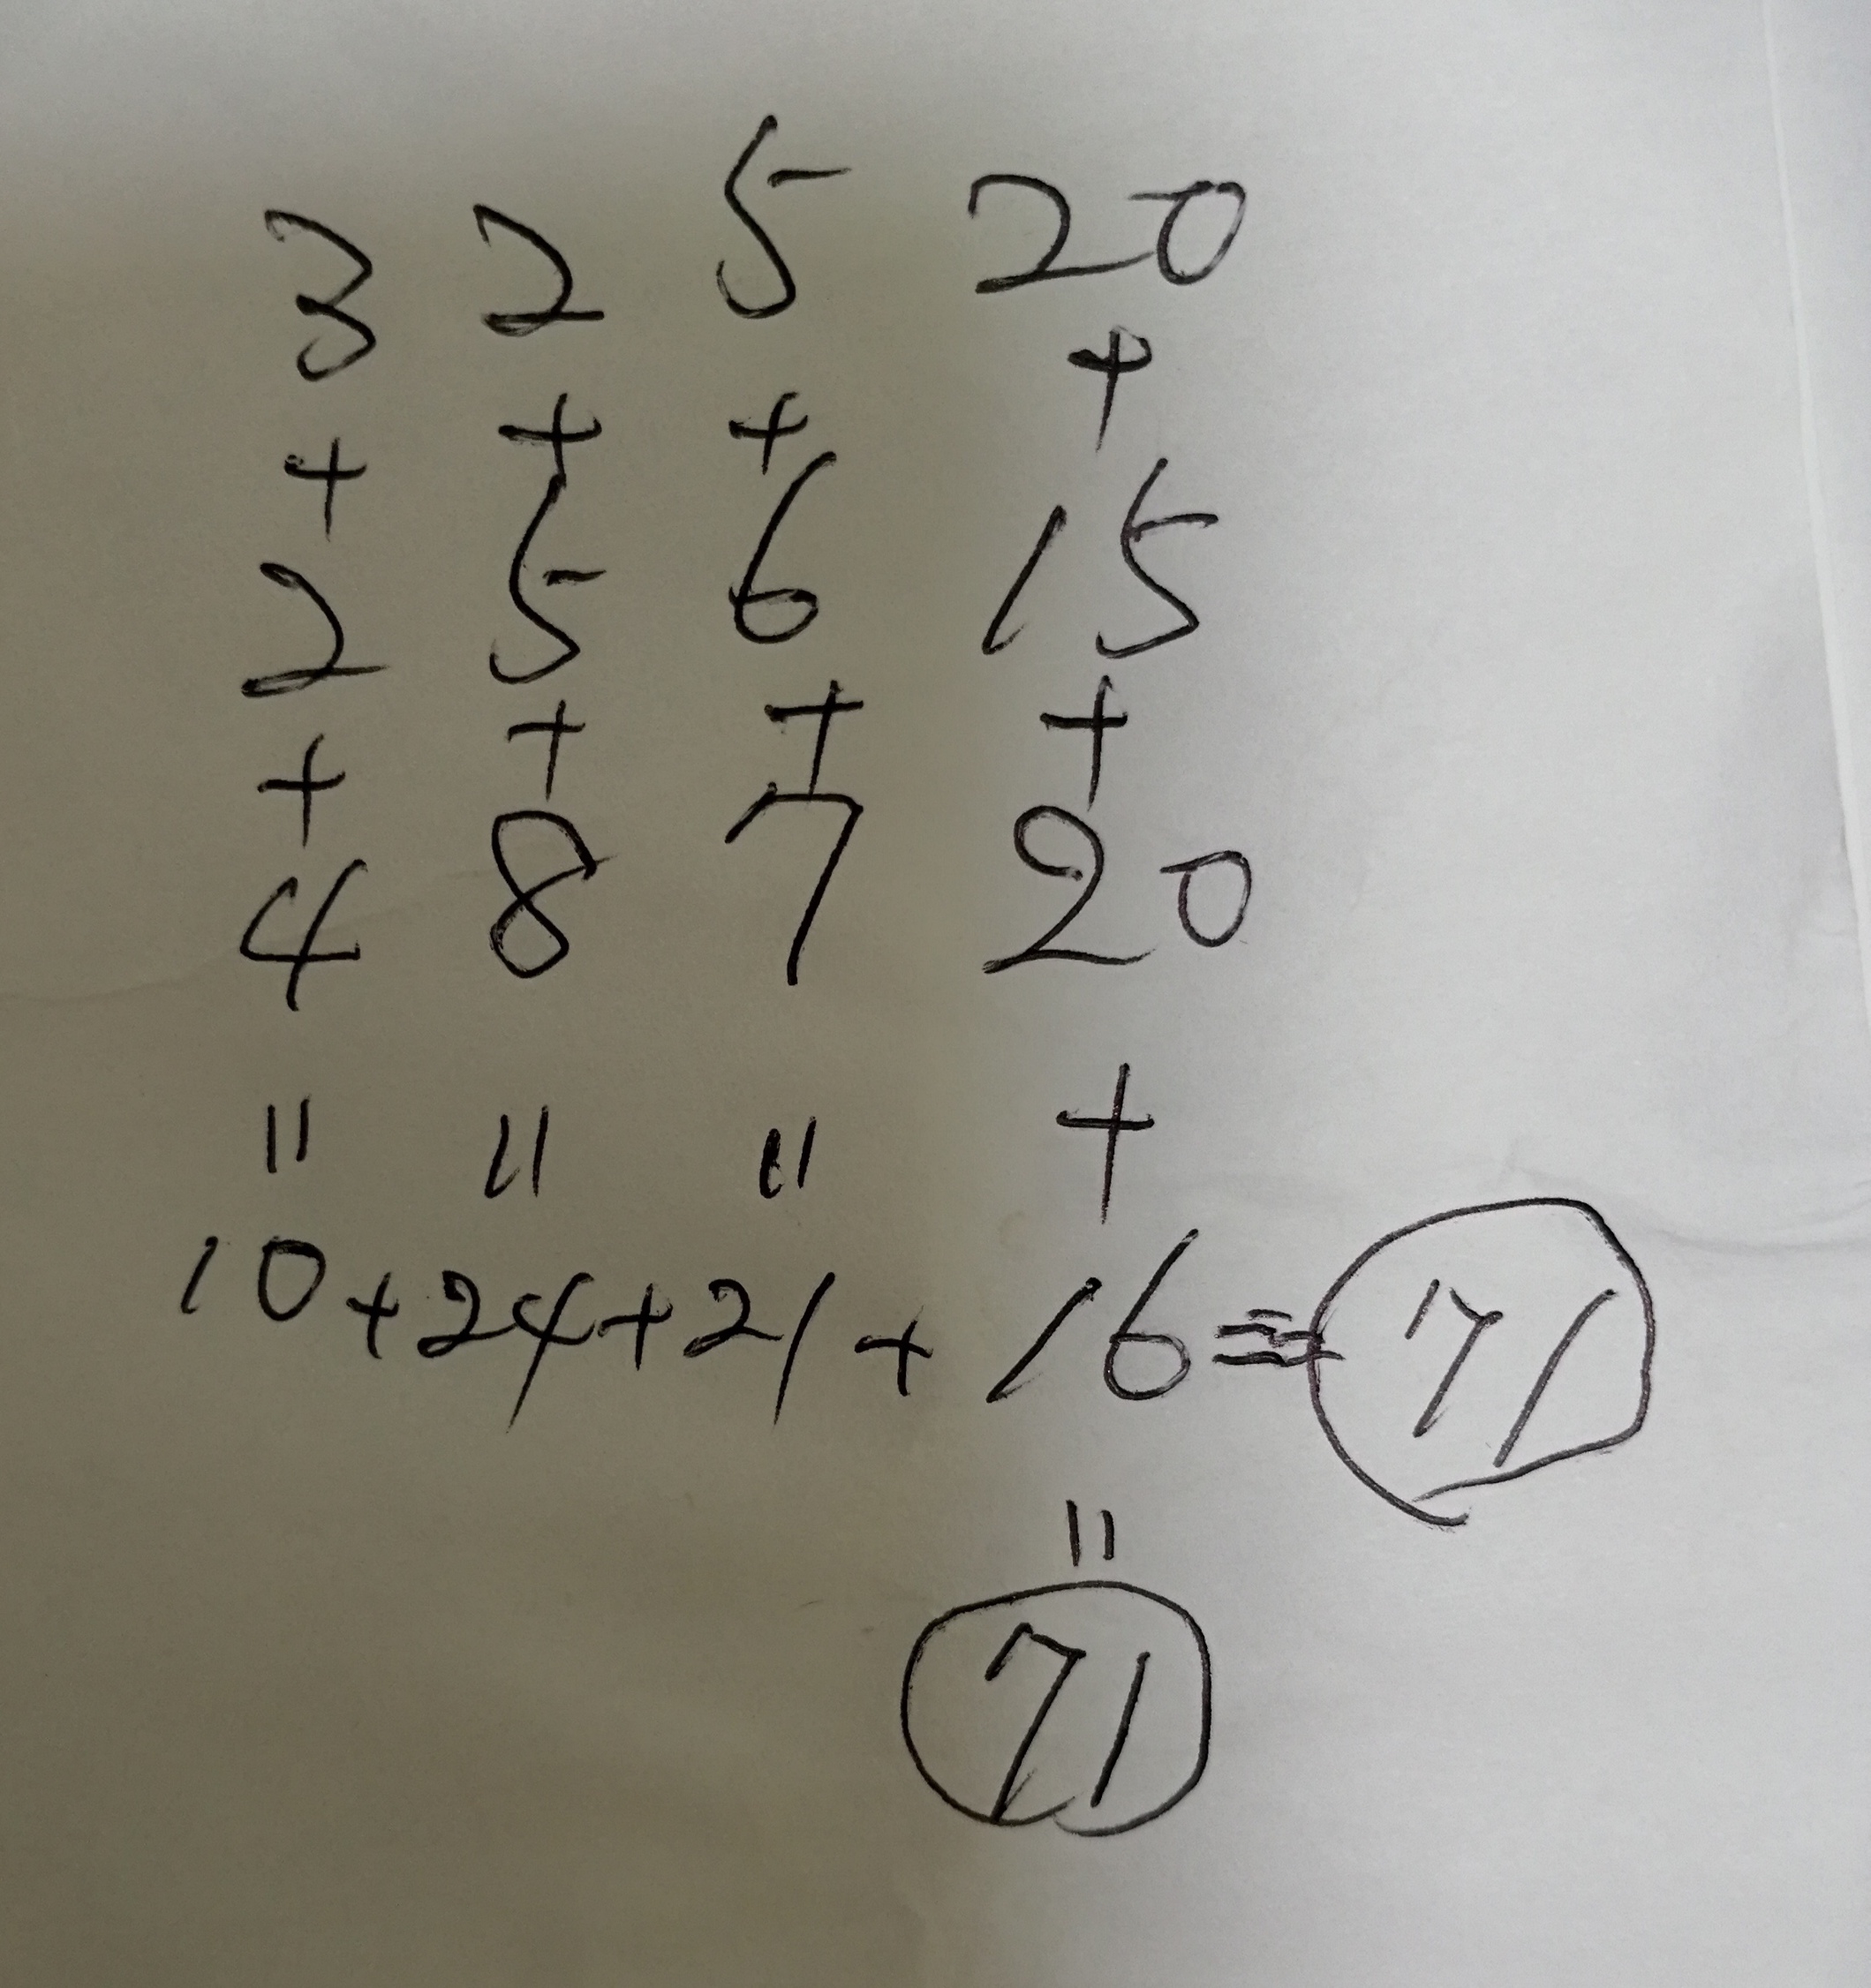 3 2 5 20
+ + + +
2 5 6 15
+ + + +
4 8 7 20
= = = +
10+24+21+16=71
=
71